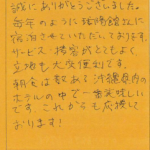 誠にありがとうございました。
毎年のように琉球館さんに
宿泊させていただいております。
サービス・接客点ととてもよく、
立地も大変便利です。
朝食は数ある沖縄県内の
ホテルの中で一番美味しい
です これからも応援して
おります!